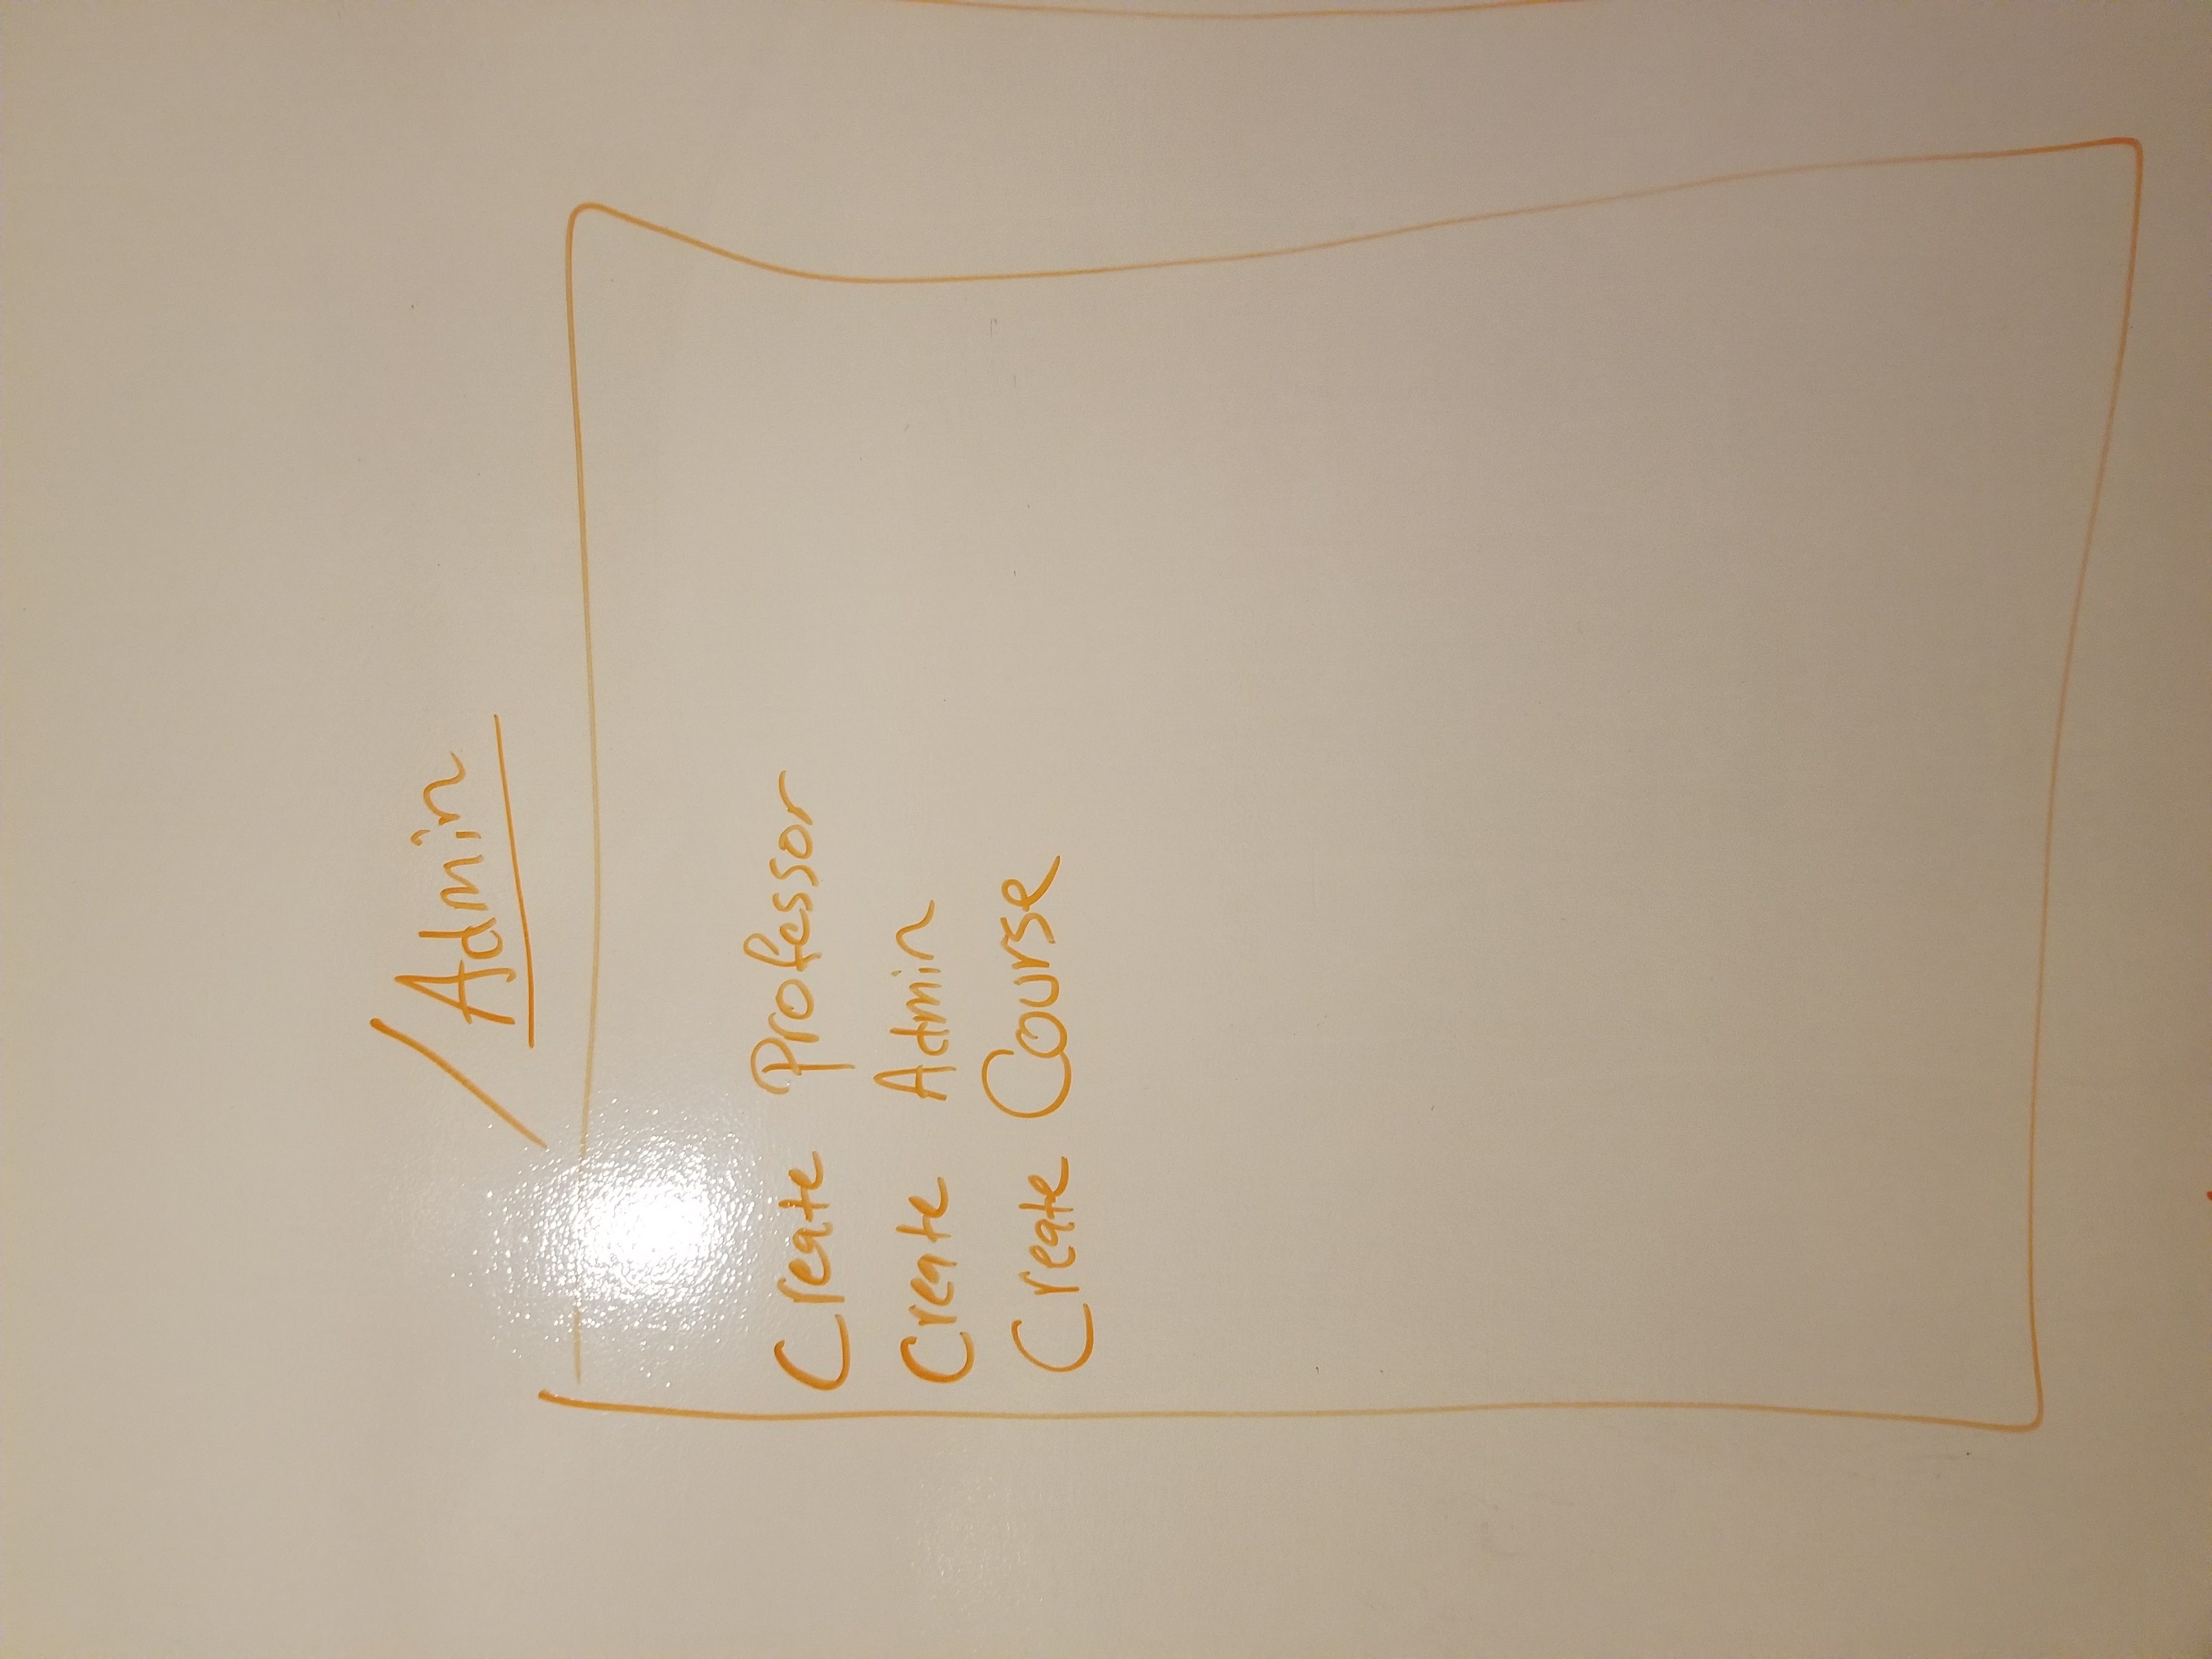 /Admin
Create Professor
Create Admin
Create Course